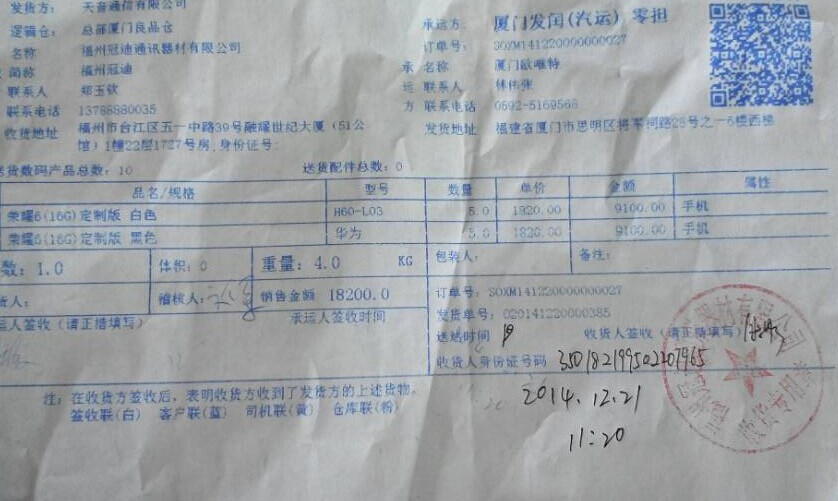 发货方： 天音通信有限公司 承运方： 厦门发闰(汽运) 零担
逻辑仓： 总部厦门良品仓 订单号： SOXM141220000000027
名称 福州冠迪通讯器材有限公司 承 名称 厦门欧唯特
简称 福州冠迪 运 联系人 林伟张
联系人 郑玉钦 方 联系电话 0592-5169568
联系电话 13788880035
收货地址 福州市台江区五一中路39号融耀世纪大厦（51公 发货地址 福建省厦门市思明区将军祠路28号之一6楼西梯
馆）1幢22层1727号房,身份证号:
送货数码产品总数：10 送货配件总数：0
品名/规格 型号 数量 单价 金额 属性
荣耀6(16G)定制版 白色 H60-L03 5.0 1820.00 9100.00 手机
荣耀6(16G)定制版 黑色 华为 5.0 1820.00 9100.00 手机
数：1.0 体积：0 重量：4.0 KG 包装人： 备注：
货人： 稽核人： 销售金额 18200.0 订单号：SOXM141220000000027
运人签收（请正楷填写） 承运人签收时间 发货单号：020141220000385
送达时间 收货人签收（请正楷填写）
收货人身份证号码 350182199502207965
注：在收货方签收后，表明收货方收到了发货方的上述货物。
签收联(白) 客户联(蓝) 司机联(黄) 仓库联(粉)
2014.12.21
11:20